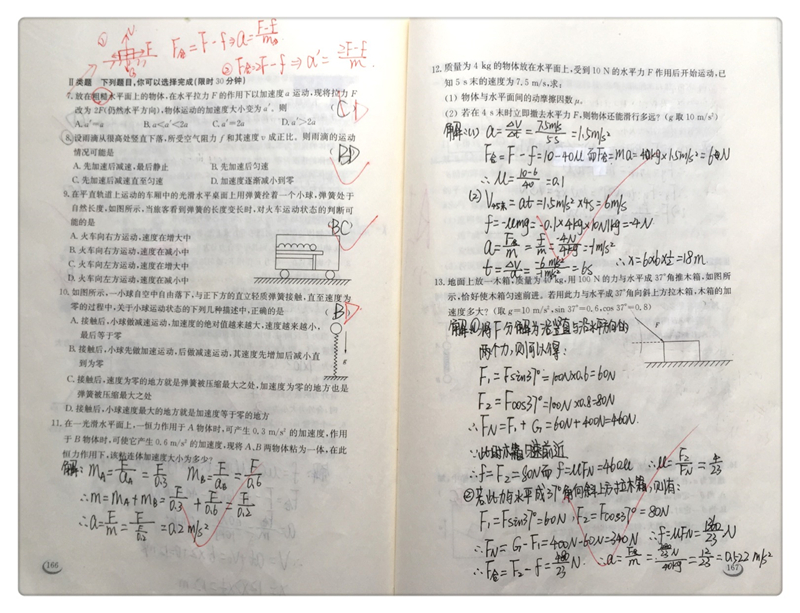 ① F F合=F-f⇒a=F-f/m
② F合=2F-f⇒a'=2F-f/m
Ⅱ类题 下列题目,你可以选择完成(限时30分钟)
7. 放在粗糙水平面上的物体,在水平拉力F的作用下以加速度a运动,现将拉力F
改为2F(仍然水平方向),物体运动的加速度大小变为a′,则 ( )
A. a′=a B. a<a′<2a C. a′=2a D. a′>2a
8. 设雨滴从很高处竖直下落,所受空气阻力f和其速度v成正比,则雨滴的运动
情况可能是 (BD)
A. 先加速后减速,最后静止 B. 先加速后匀速
C. 先加速后减速直至匀速 D. 加速度逐渐减小到零
9. 在平直轨道上运动的车厢中的光滑水平桌面上用弹簧拴着一个小球,弹簧处于
自然长度,如图所示,当旅客看到弹簧的长度变长时,对火车运动状态的判断可
能的是 (BC)
A. 火车向右方运动,速度在增大中
B. 火车向右方运动,速度在减小中
C. 火车向左方运动,速度在增大中
D. 火车向左方运动,速度在减小中
10. 如图所示,一小球自空中自由落下,与正下方的直立轻质弹簧接触,直至速度为
零的过程中,关于小球运动状态的下列几种描述中,正确的是
A. 接触后,小球做减速运动,加速度的绝对值越来越大,速度越来越小,
最后等于零
B. 接触后,小球先做加速运动,后做减速运动,其速度先增加后减小直
到为零
C. 接触后,速度为零的地方就是弹簧被压缩最大之处,加速度为零的地方也是
弹簧被压缩最大之处
D. 接触后,小球速度最大的地方就是加速度等于零的地方
11. 在一光滑水平面上,一恒力作用于A物体时,可产生0.3 m/s²的加速度,作用
于B物体时,可使它产生0.6 m/s²的加速度,现将A、B两物体粘为一体,在此
恒力作用下,该粘连体加速度大小为多少?
解: mA=F/aA=F/0.3 mB=F/aB=F/0.6
∴m=mA+mB=F/0.3+F/0.6=F/0.2
∴a=F/m=F/(F/0.2)=0.2m/s²
166
12. 质量为4 kg的物体放在水平面上,受到10 N的水平力F作用后开始运动,已
知5 s末的速度为7.5 m/s,求:
(1) 物体与水平面间的动摩擦因数μ.
(2) 若在4 s末时立即撤去水平力F,则物体还能滑行多远?(g取10 m/s²)
解:(1) a=ΔV/t=7.5m/s/5s=1.5m/s²
F合=F-f=10-40μ 而F合=ma=4kg×1.5m/s²=6N
∴μ=10-6/40=0.1
(2) V4s末=at=1.5m/s²×4s=6m/s
f=-μmg=-0.1×4kg×10N/kg=-4N
a=F合/m=f/m=-4N/4kg=-1m/s²
t=ΔV/a=-6m/s/-1m/s²=6s ∴x=6×6×½=18m
13. 地面上放一木箱,质量为40 kg,用100 N的力与水平成37°角推木箱,如图所
示,恰好使木箱匀速前进。若用此力与水平成37°角向斜上方拉木箱,木箱的加
速度多大?(取g=10 m/s²,sin 37°=0.6,cos 37°=0.8)
解:①将F分解为沿竖直与沿水平方向的
两个力,则可以得:
F₁=Fsin37°=100N×0.6=60N
F₂=Fcos37°=100N×0.8=80N
∴FN=F₁+G=60N+400N=460N
∴f=F₂=80N而f=μFN=460μ ∴μ=F₂/FN=4/23
②若此力与水平成37°角向斜上方拉木箱,则有:
F₁=Fsin37°=60N,F₂=Fcos37°=80N
∴FN=G-F₁=400N-60N=340N ∴f=μFN=1360/23N
∴F合=F₂-f=480/23N ∴a=F合/m=480/23N/40kg=12/23=0.522m/s²
167